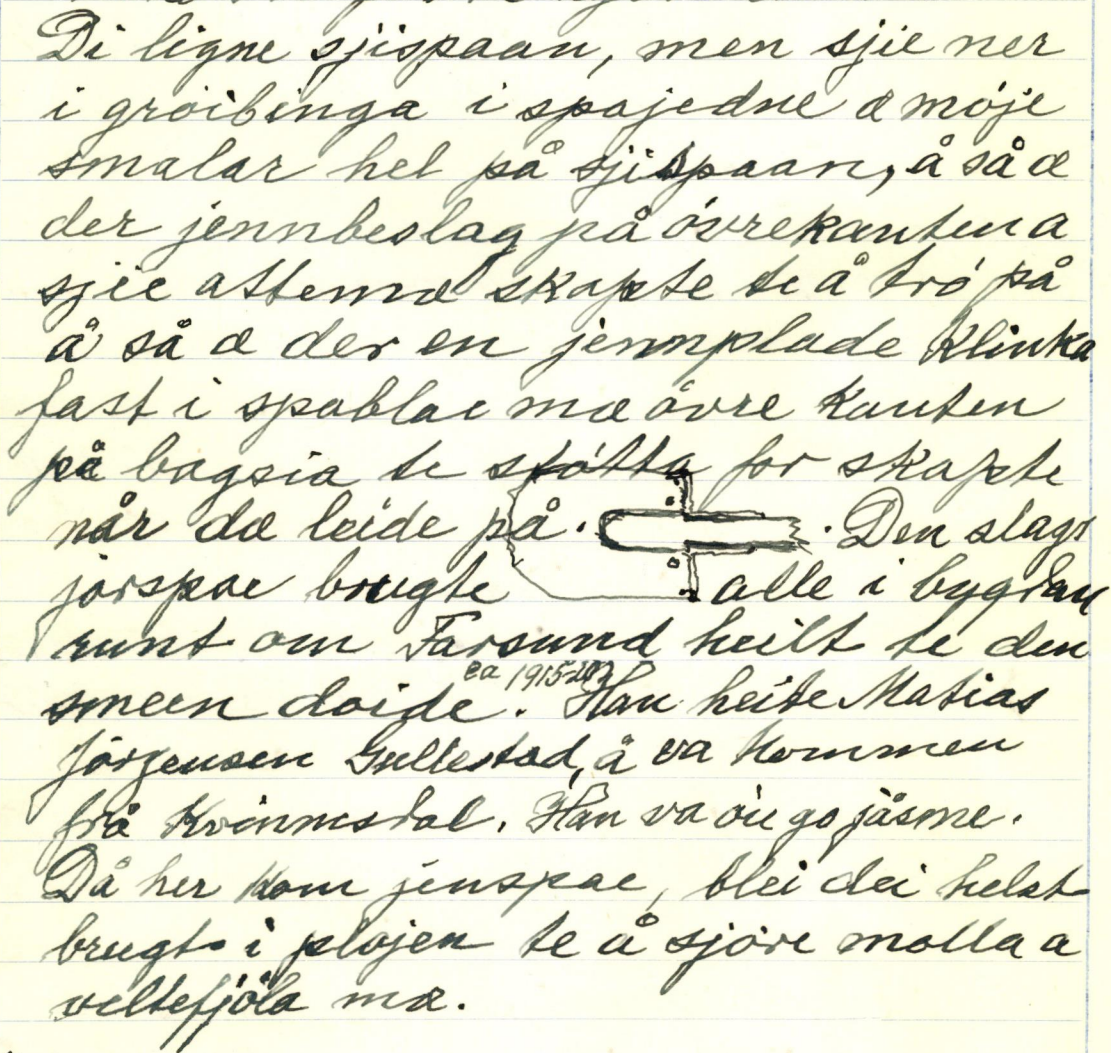 Di ligne sjispaan, men sjie ner
i gröibinga i spajedne æ möje
smalar hel på sjispaan, å så æ
der jennbeslag på övrekanten a
sjie attemæ skapte te å trö på
å så æ der en jennplade klinka
fast i spablae mæ övre kanten
på bagsia te stötta for skapte
når dæ leide på. Den slags
jörspae brugte alle i bygdan
runt om Farsund heilt te den
smeen doide. ca 1915-20 Han heite Matias
Jörgensen Gullestad, å va kommen
frå Kvinnesdal. Han va öu go jåsme.
Då her kom jenspae, blei dei helst
brugt i plojen te å sjöre molla a
veltefjöla mæ.